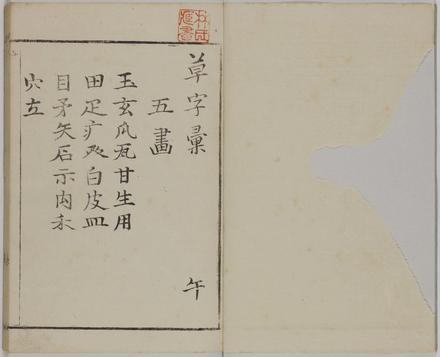 草字彙 午
五畫
玉玄瓜瓦甘生用
田疋疒癶白皮皿
目矛矢石示禸禾
穴立